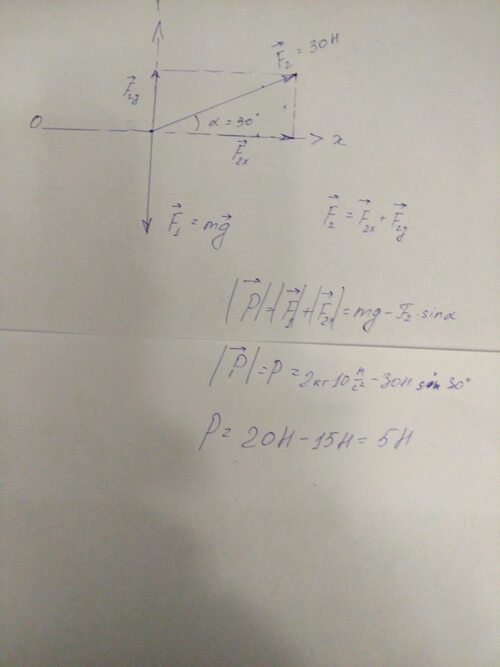 F₂ = 30H
F₂y
O
α = 30°
x
F₂x
F₁ = mg
F₂ = F₂x + F₂y
|P| = |F₁| + |F₂x| = mg - F₂ · sin α
|P| = P = 2кг 10 м/с² - 30H sin 30°
P = 20H - 15H = 5H